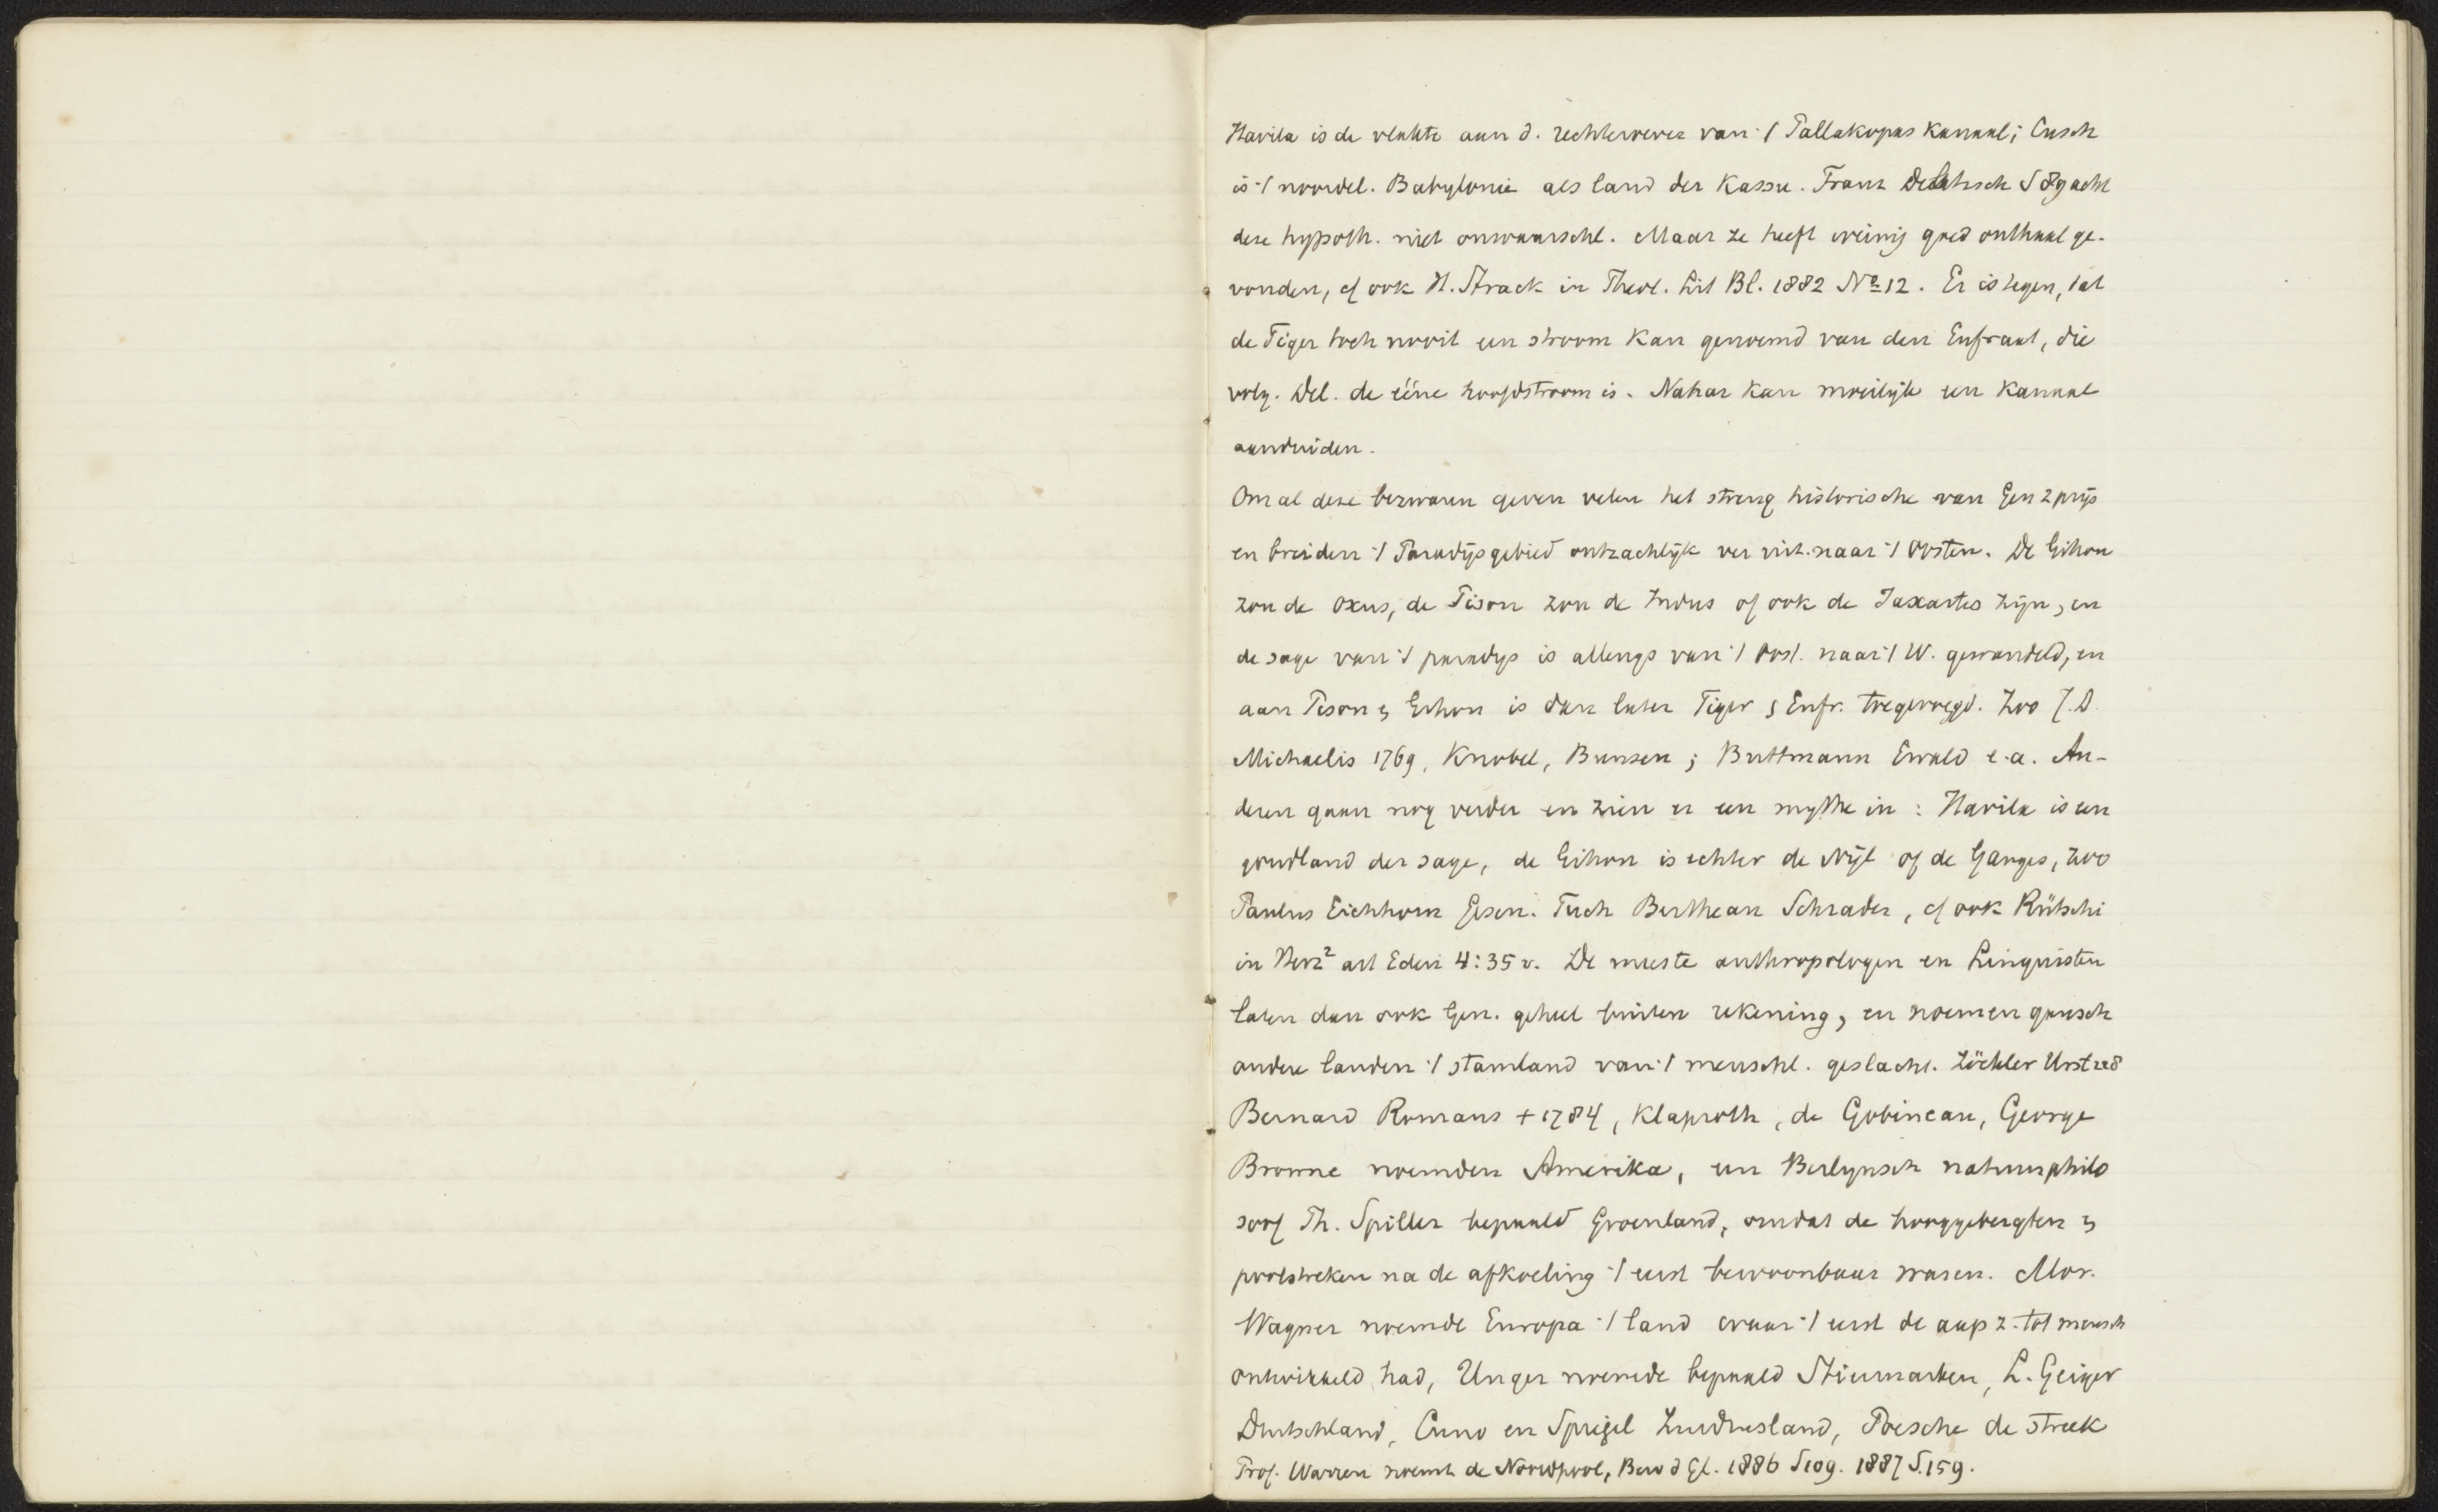 Havila is de vlakte aan d. rechteroever van ·/ Pallakopas kanaal; Cusch
is ·/ noordel. Babylonie als land der Kassu. Franz Delitzsch S 89 acht
deze hypoth. niet onwaarschl. Maar ze heeft weinig goed onthaal ge-
vonden, cf ook H. Strack in Theol. Lit Bl. 1882 No 12. Er is tegen, dat
de Tiger toch nooit een stroom kan genoemd van den Eufraat, die
volg. Del. de ééne hoofdstroom is. Nahar kan moeilijk een kanaal
aanduiden.
Om al deze bezwaren geven velen het streng historische van Gen 2 prijs
en breiden ·/ Paradijsgebied ontzachlijk ver uit naar ·/ Oosten. De Gihon
zou de Oxus, de Pison zou de Indus of ook de Jaxartes zijn, en
de sage van ·/ paradys is allengs van ·/ Oost. naar ·/ W. gewandeld, en
aan Pison & Gihon is dan later Tiger & Eufr. toegevoegd. Zoo J.D.
Michaelis 1769, Knobel, Bunsen; Buttmann Ewald e.a. An-
deren gaan nog verder en zien er een mythe in: Havila is een
goudland der sage, de Gihon is echter de Nijl of de Ganges, zoo
Paulus Eichhorn Gesen. Tuch Bertheau Schrader, cf ook Rütschi
in Herz² art Eden 4:35 v. De meeste anthropologen en Linguisten
laten dan ook Gen. geheel buiten rekening, en noemen gansch
andere landen ·/ stamland van ·/ menschl. geslacht. Zöckler Urst
Bernard Romans + 1784, Klaproth, de Gobineau, George
Browne noemden Amerika, een Berlynsch natuurphilo
soof Th. Spiller bepaald Groenland, omdat de hooggebergten &
poolstreken na de afkoeling ·/ eerst bewoonbaar waren. Mor.
Wagner noemde Europa ·/ land waar ·/ eerst de aap z. tot mensch
ontwikkeld had, Unger noemde bepaald Stiermarken, L. Geiger
Duitschland, Cuno en Spiegel Zuidrusland, Poesche de streek
Prof. Warren noemt de Noordpool, Bew d Gl. 1886 S 109. 1887 S. 159.